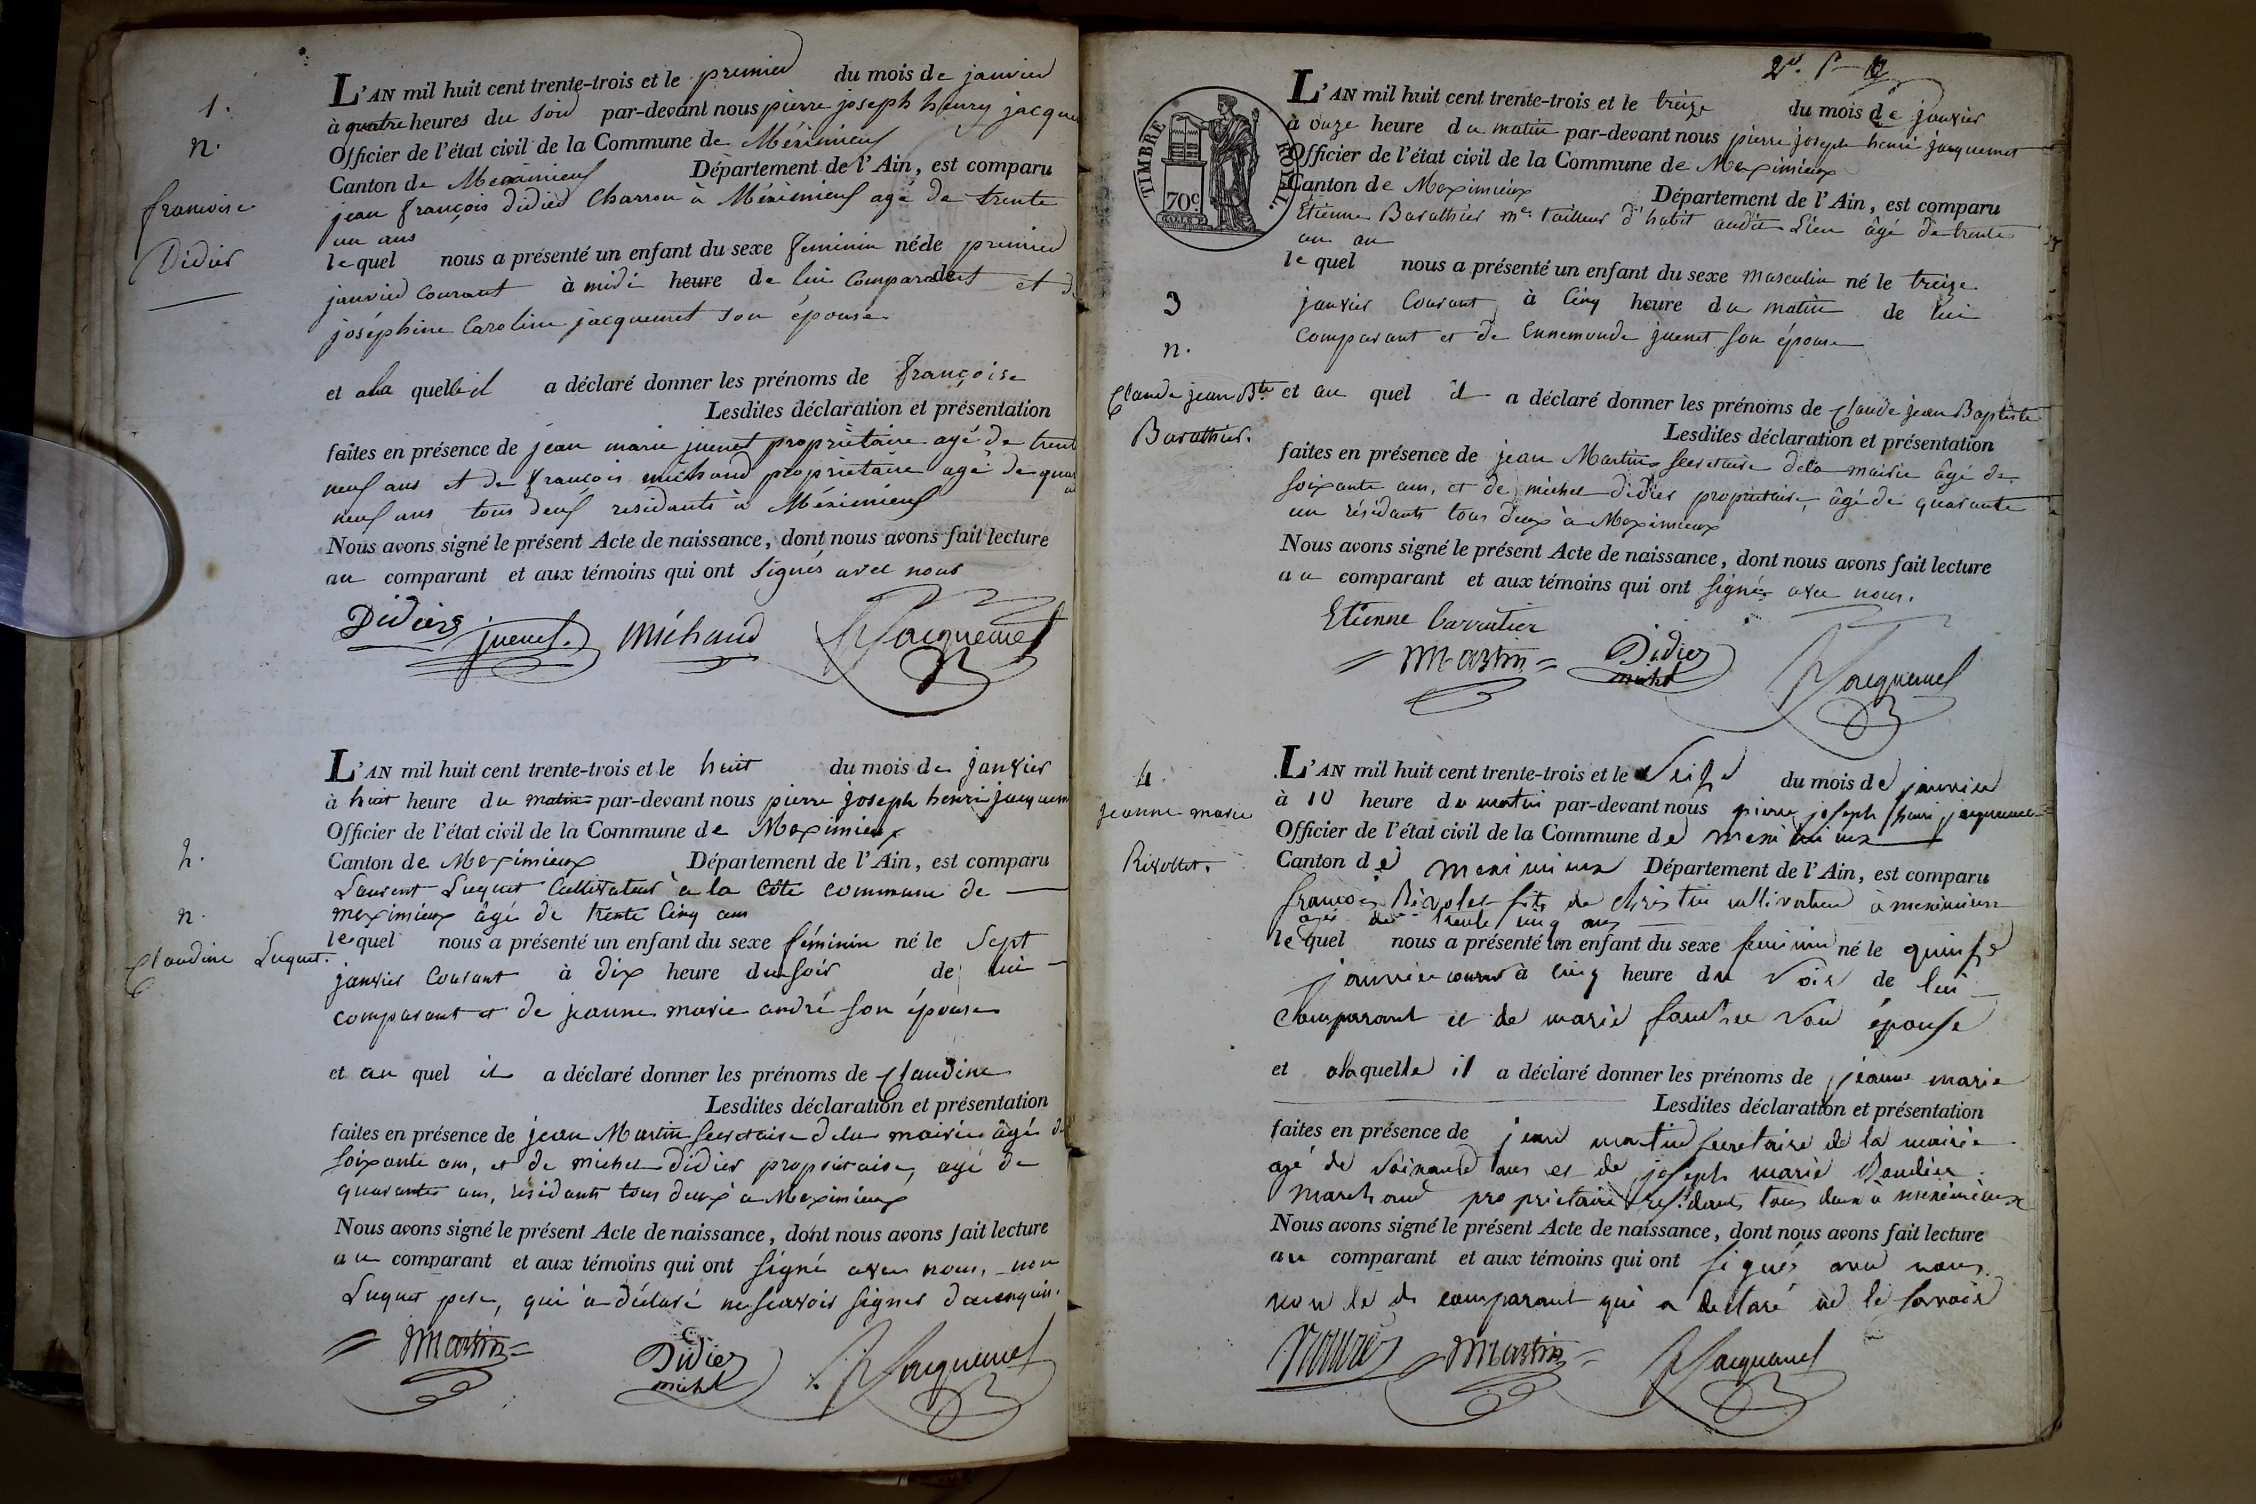 1.
n.
francoise
Didier
L'AN mil huit cent trente-trois et le premier du mois de janvier
à quatre heures du soir par-devant nous pierre joseph henry jacque
Officier de l'état civil de la Commune de Méximieux
Canton de Meximieux Département de l'Ain, est comparu
jean françois didier Charron à Méximieux agé de trente
un ans
lequel nous a présenté un enfant du sexe feminin née le premier
janvier courant à midi heure de lui comparant et d
joséphine Caroline jacquemet son épouse
et a la quelle il a déclaré donner les prénoms de françoise
Lesdites déclaration et présentation
faites en présence de jean marie juenet propriètaire agé de trent
neuf ans et de françois michaud proprietaire agé de qua
neuf ans tous deux residants à Méximieux
Nous avons signé le présent Acte de naissance, dont nous avons fait lecture
au comparant et aux témoins qui ont signés avec nous
Didier juenet. Michaud Jacquemet
2.
n.
Claudine Luquet.
L'AN mil huit cent trente-trois et le huit du mois de janvier
à huit heure du matin par-devant nous pierre joseph henri jacquem
Officier de l'état civil de la Commune de Meximieux
Canton de Meximieux Département de l'Ain, est comparu
Laurent Luquet Cultivateur à la Côte commune de
meximieux âgé de trente cinq ans
lequel nous a présenté un enfant du sexe féminin né le Sept
janvier courant à dix heure du soir de lui
comparant et de jeanne marie andré son épouse
et au quel il a déclaré donner les prénoms de Claudine
Lesdites déclaration et présentation
faites en présence de jean Martin secretaire de la mairie âgé d
soixante ans, et de michel didier propriétaire, agé de
quarante ans, résidants tous deux à Meximieux
Nous avons signé le présent Acte de naissance, dont nous avons fait lecture
au comparant et aux témoins qui ont signé avec nous, non
Luquet pere, qui a déclaré ne scavoir signer
Martin Didier michel Jacquemet
TIMBRE ROYAL.
70c
3
n.
Claude jean Bte
Barathier.
L'AN mil huit cent trente-trois et le treize du mois de janvier
à onze heure du matin par-devant nous pierre joseph henri jacquemet
Officier de l'état civil de la Commune de Meximieux
Canton de Meximieux Département de l'Ain, est comparu
Etienne Barathier me tailleur d'habit audit Lieu âgé de trente
un an
lequel nous a présenté un enfant du sexe masculin né le treize
janvier Courant à Cinq heure du matin de lui
comparant et de Ennemonde juenet son épouse
et au quel il a déclaré donner les prénoms de Claude jean Baptiste
Lesdites déclaration et présentation
faites en présence de jean Martin secretaire de la mairie âgé de
soixante ans, et de michel didier propriétaire, âgé de quarante
un résidants tous deux à Meximieux
Nous avons signé le présent Acte de naissance, dont nous avons fait lecture
au comparant et aux témoins qui ont signé avec nous.
Etienne barratier
Martin Didier michel Jacquemet
4.
jeanne marie
Rivollet.
L'AN mil huit cent trente-trois et le Seize du mois de janvier
à 10 heure du matin par-devant nous pierre joseph henri jacquemet
Officier de l'état civil de la Commune de meximieux
Canton de meximieux Département de l'Ain, est comparu
françois Rivolet fils de christin cultivateur à meximieux
agé de trente cinq ans
lequel nous a présenté un enfant du sexe feminin né le quinze
janvier courant à cinq heure du Soir de lui
Comparant et de marie son épouse
et a laquelle il a déclaré donner les prénoms de jeanne marie
Lesdites déclaration et présentation
faites en présence de jean martin secretaire de la mairie
agé de Soixante ans et de joseph marie
marchand proprietaire résidants tous deux à meximieux
Nous avons signé le présent Acte de naissance, dont nous avons fait lecture
au comparant et aux témoins qui ont signés avec nous
non le d comparant qui a declaré ne le savoir
Martin Jacquemet